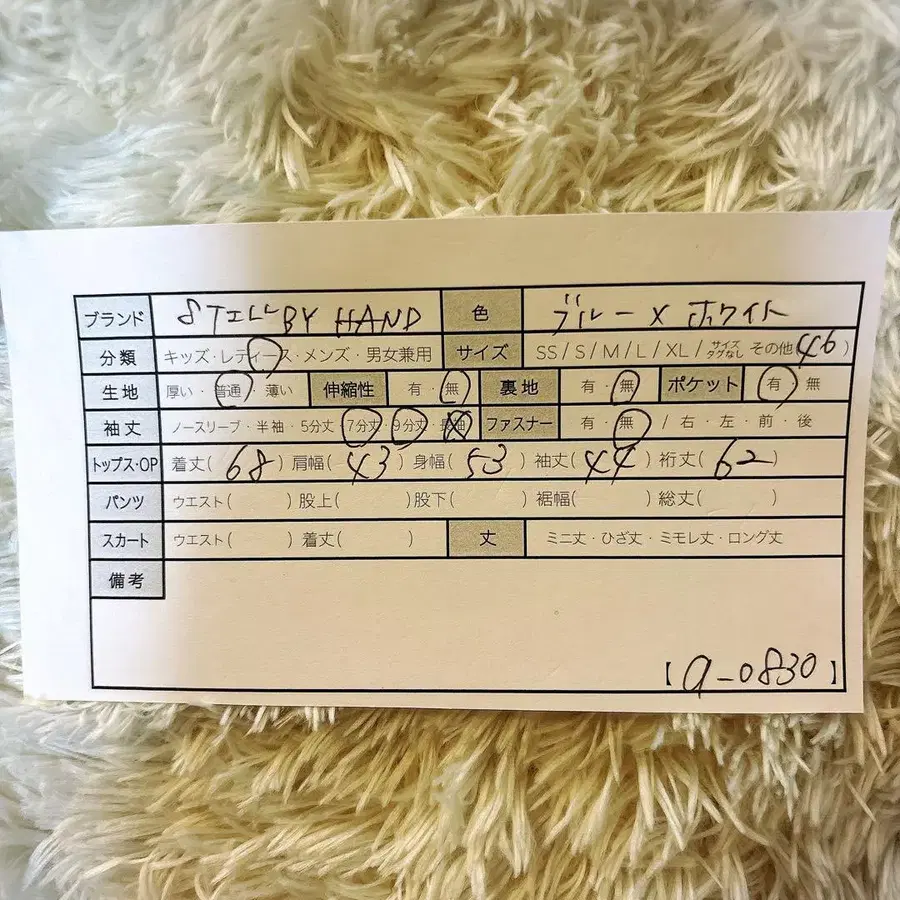 ブランド STILL BY HAND 色 ブルー×ホワイト
分類 キッズ・レディース・メンズ・男女兼用 サイズ SS/S/M/L/XL/サイズタグなし その他(46)
生地 厚い・普通・薄い 伸縮性 有・無 裏地 有・無 ポケット 有・無
袖丈 ノースリーブ・半袖・5分丈・7分丈・9分丈・長袖 ファスナー 有・無/右・左・前・後
トップス・OP 着丈(68)肩幅(43)身幅(53)袖丈(44)裄丈(62)
パンツ ウエスト( )股上( )股下( )裾幅( )総丈( )
スカート ウエスト( )着丈( ) 丈 ミニ丈・ひざ丈・ミモレ丈・ロング丈
備考
【a-0830】